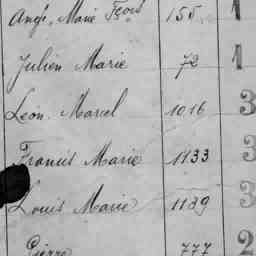 Ange Marie Fçois 155 1
Julien Marie 72 1
Léon Marcel 1016 3
Francis Marie 1133 3
Louis Marie 1139 3
Pierre 777 2